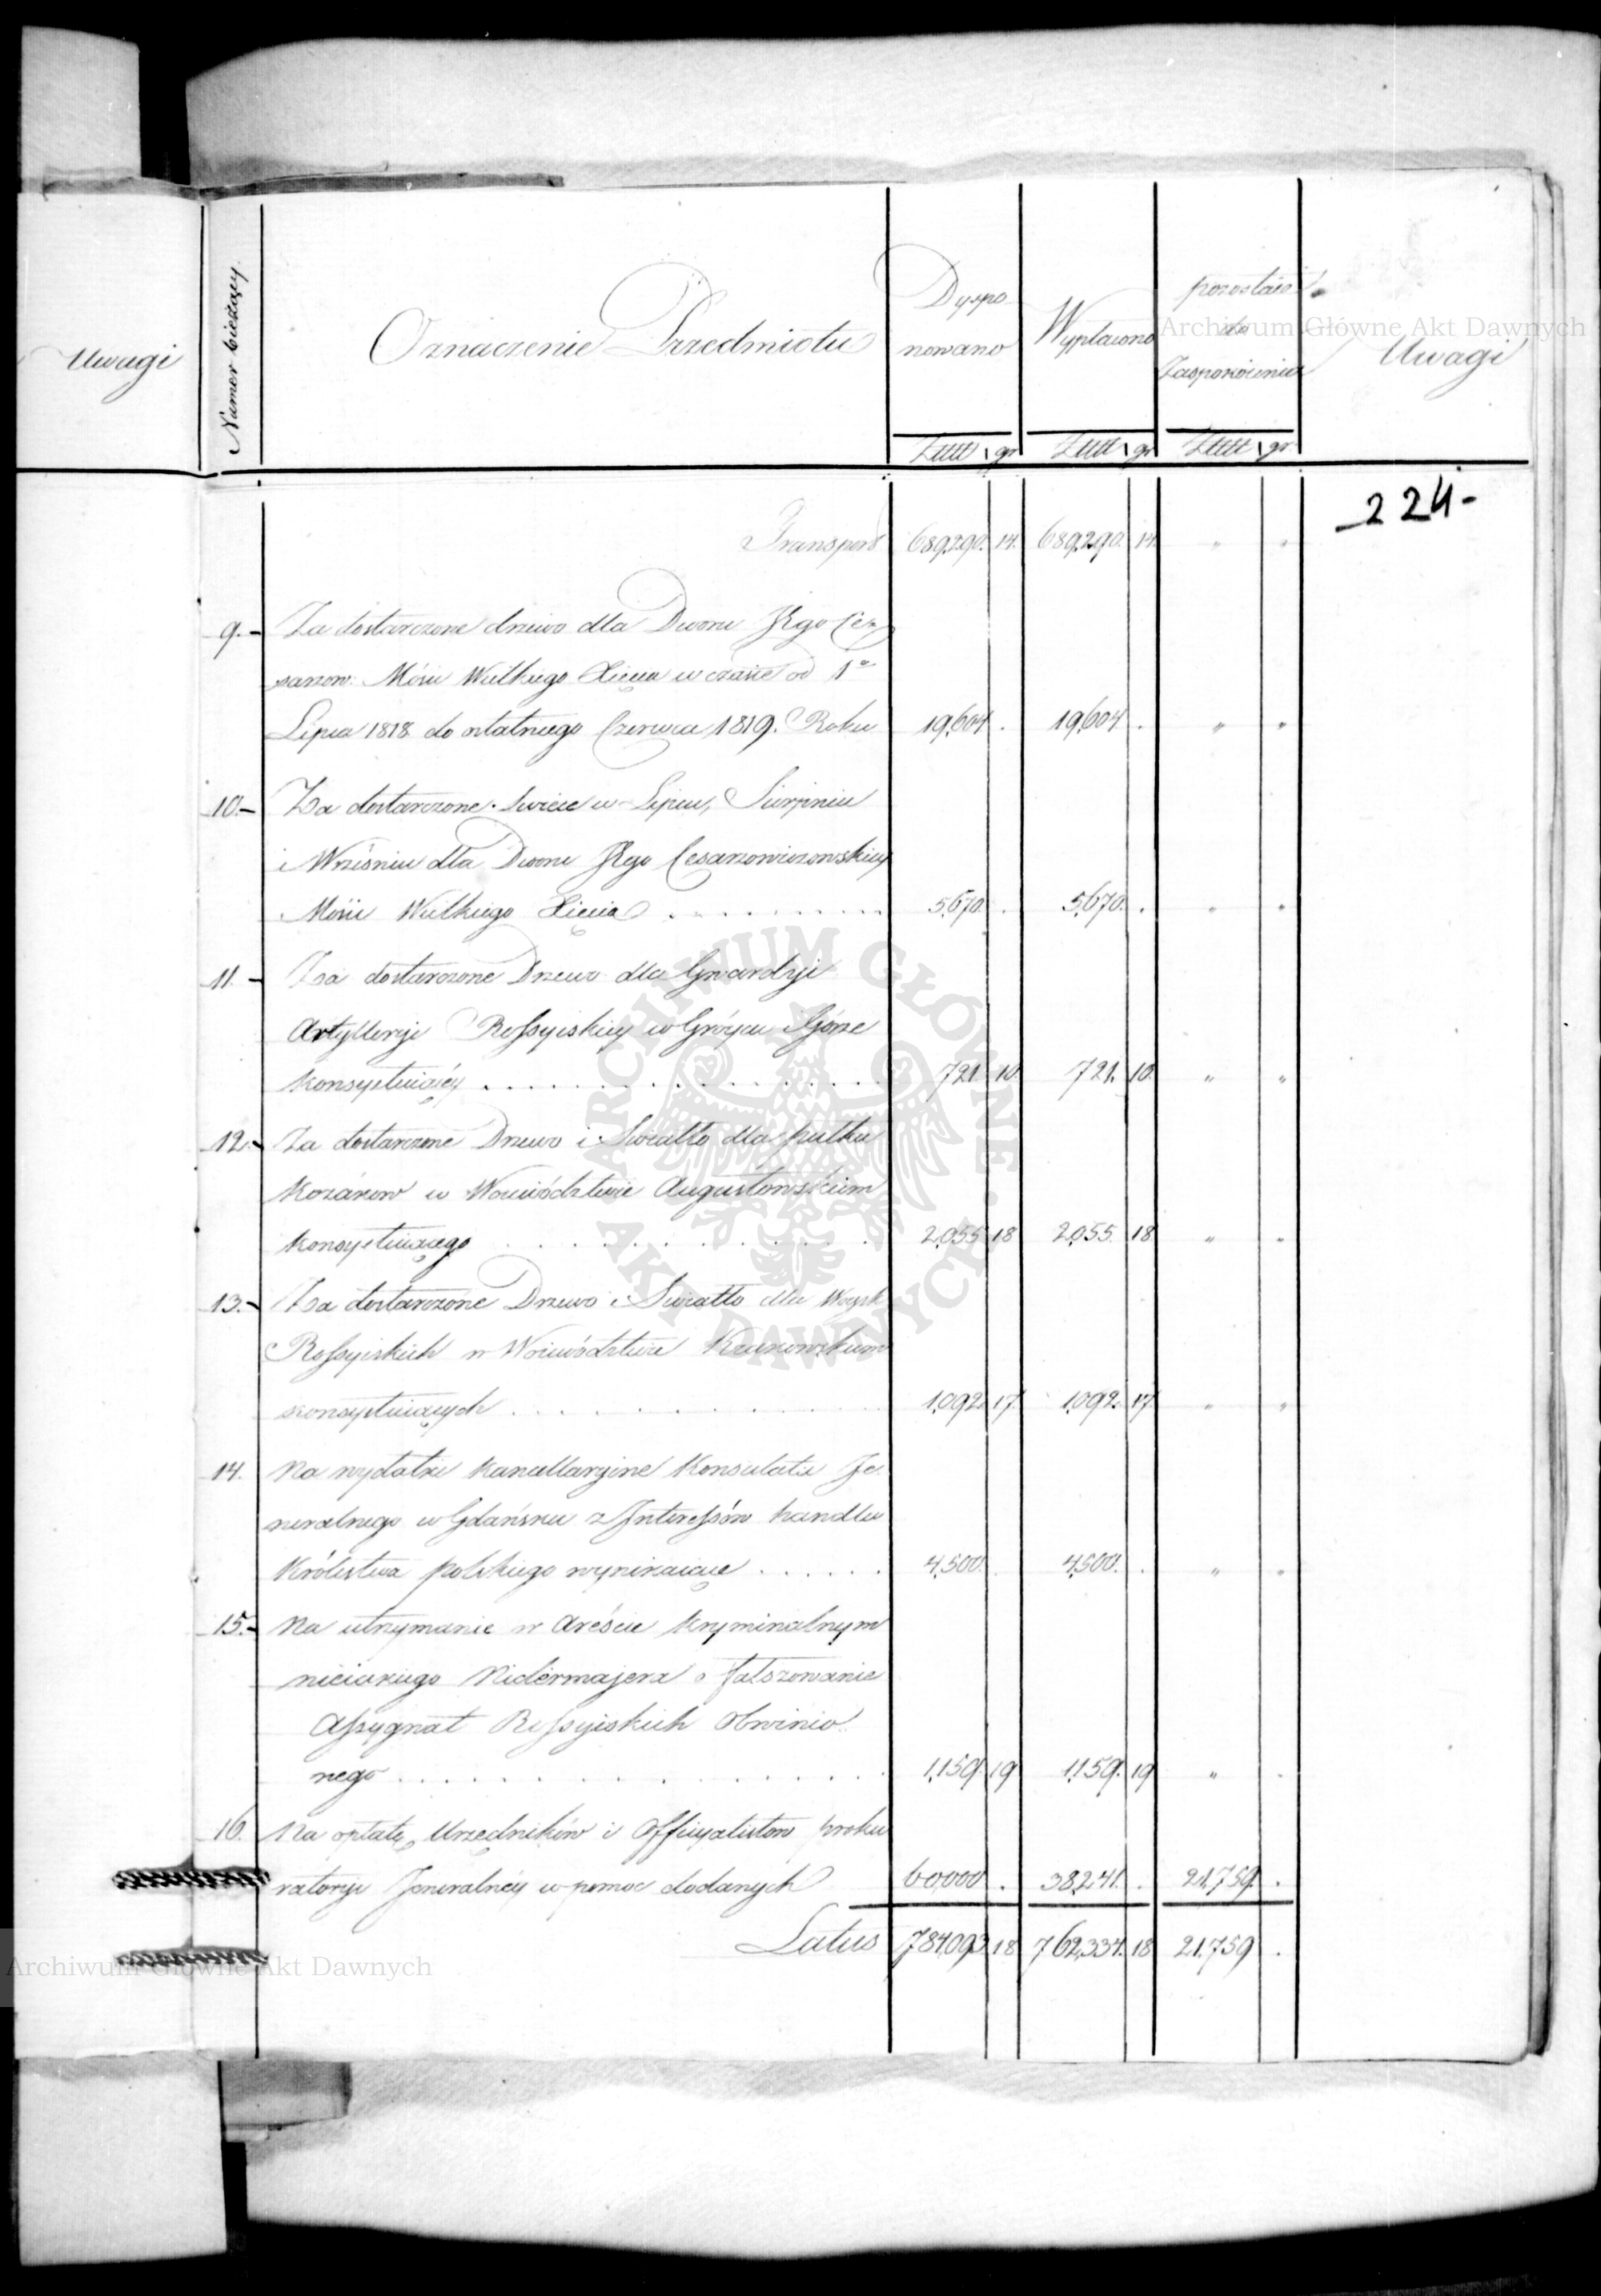 Uwagi
Numer bieżący
Oznaczenie Przedmiotu
Dyspo
nowano
Wypłacono
pozostaie
do
Zaspokoienia
Uwagi
Złłł gr Złłł gr Złłł gr
224-
Transport 689,290. 14. 689,290. 14. " "
9.- Za dostarczone drzewo dla Dworu JKgo Ce-
sarzow: Mości Wielkiego Xięcia w czasie od 1o
Lipca 1818 do ostatniego Czerwca 1819. Roku 19,604 . 19,604 . " "
10.- Za dostarczone Swiece w Lipcu, Sierpniu
i Wrześniu dla Dworu JKgo Cesarzowiczowskiey
Mości Wielkiego Xięcia . . . . . . . . 5,670. . 5,670. . " "
11.- Za dostarczone Drzewo dla Gwardyi
Artylleryi Rossyiskiey w Gróycu i Górze
konsystuiącéy . . . . . . . . . . . . . 721 10 721. 10. " "
12.- Za dostarczone Drzewo i Swiatło dla pułku
Kozaków w Woiewództwie Augustowskiém
konsystuiącego . . . . . . . . . . . . 2,055 18 2,055. 18 " "
13.- Za dostarczone Drzewo i Swiatło dla Woysk
Rossyiskich w Woiewództwie Krakowskiem
konsystuiących . . . . . . . . . . 1,092. 17. 1,092. 17 " "
14. Na wydatki kancellaryine Konsulatu Je-
neralnego w Gdańsku z Interessów handlu
Królestwa Polskiego wynikaiące . . . . . . 4,500. . 4,500. . " "
15.- Na utrzymanie w Areście kryminalnym
nieiakiego Nidermajera o fałszowanie
Assygnat Rossyiskich obwinio-
nego . . . . . . . . . . . . . . . . 1,159. 19 1,159. 19 " .
16. Na opłatę Urzędników i Officyalistów Proku
ratoryi Jeneralnéy w pomoc dodanych 60,000 . 38,241. . 21,759. .
Latus 784,093 18 762,334. 18 21,759 .
Archiwum Główne Akt Dawnych
ARCHIWUM GŁÓWNE AKT DAWNYCH
Archiwum Główne Akt Dawnych